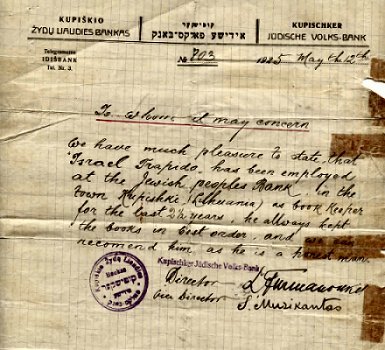 KUPIŠKIO
ŽYDŲ LIAUDIES BANKAS
Telegramoms:
IDIŠBANK
Tel. Nr. 3.
קופישקער
אידישע פאלקס־באנק
KUPISCHKER
JÜDISCHE VOLKS-BANK
№ 703
1925 May the 12th
To whom I may concern
We have much pleasure to state, that
Israel Trapido has been employed
at the Jewish peoples Bank, in the
town Kupishki (Lithuania) as book keeper
for the last 2½ years, he allways kept
the books in best order, and we can
recomend him as he is a honest man.
Kupischker Jüdische Volks-Bank
Director
Vice Director
S. Muzikantas
Kupiškio Žydų Liaudies
Bankas
קופישקער